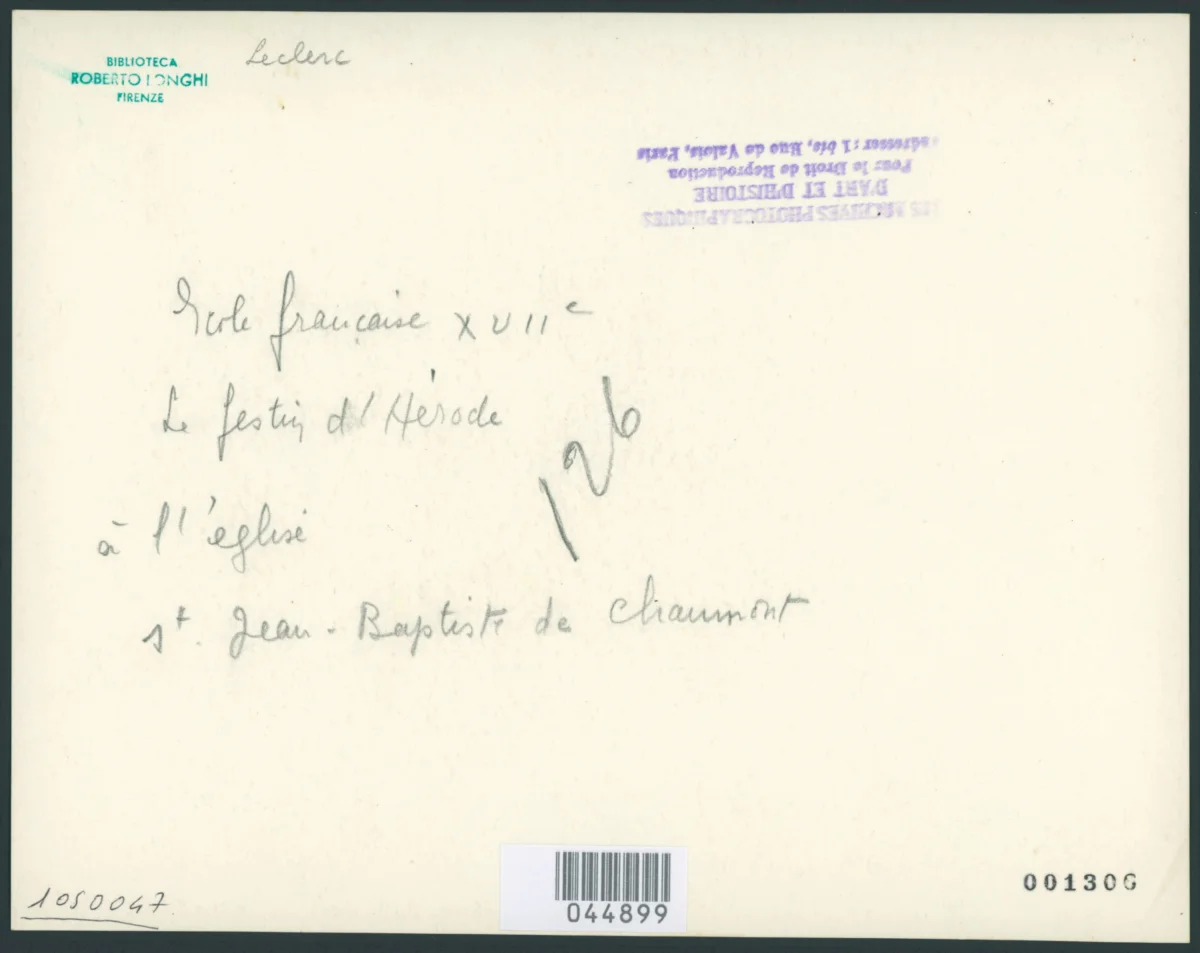 BIBLIOTECA
ROBERTO LONGHI
FIRENZE
Leclerc
LES ARCHIVES PHOTOGRAPHIQUES
D'ART ET D'HISTOIRE
Pour le Droit de Reproduction
s'adresser : 1 bis, Rue de Valois, Paris
Ecole française XVIIe
Le festin d'Hérode
126
à l'église
st. Jean-Baptiste de Chaumont
1050047
044899
001306